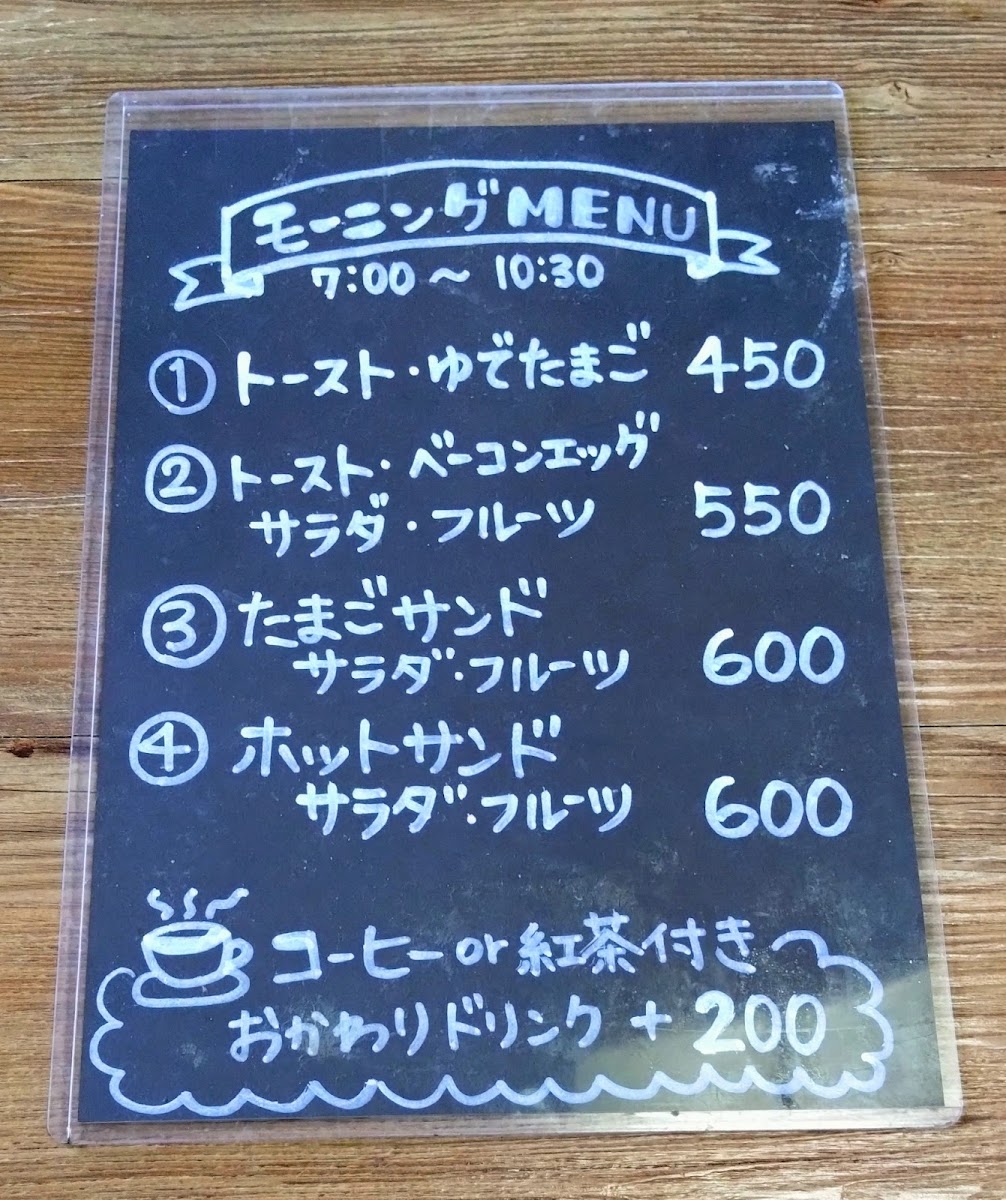 モーニングMENU
7:00〜10:30
① トースト・ゆでたまご 450
② トースト・ベーコンエッグ
サラダ・フルーツ 550
③ たまごサンド
サラダ・フルーツ 600
④ ホットサンド
サラダ・フルーツ 600
コーヒーor紅茶付き
おかわりドリンク+200